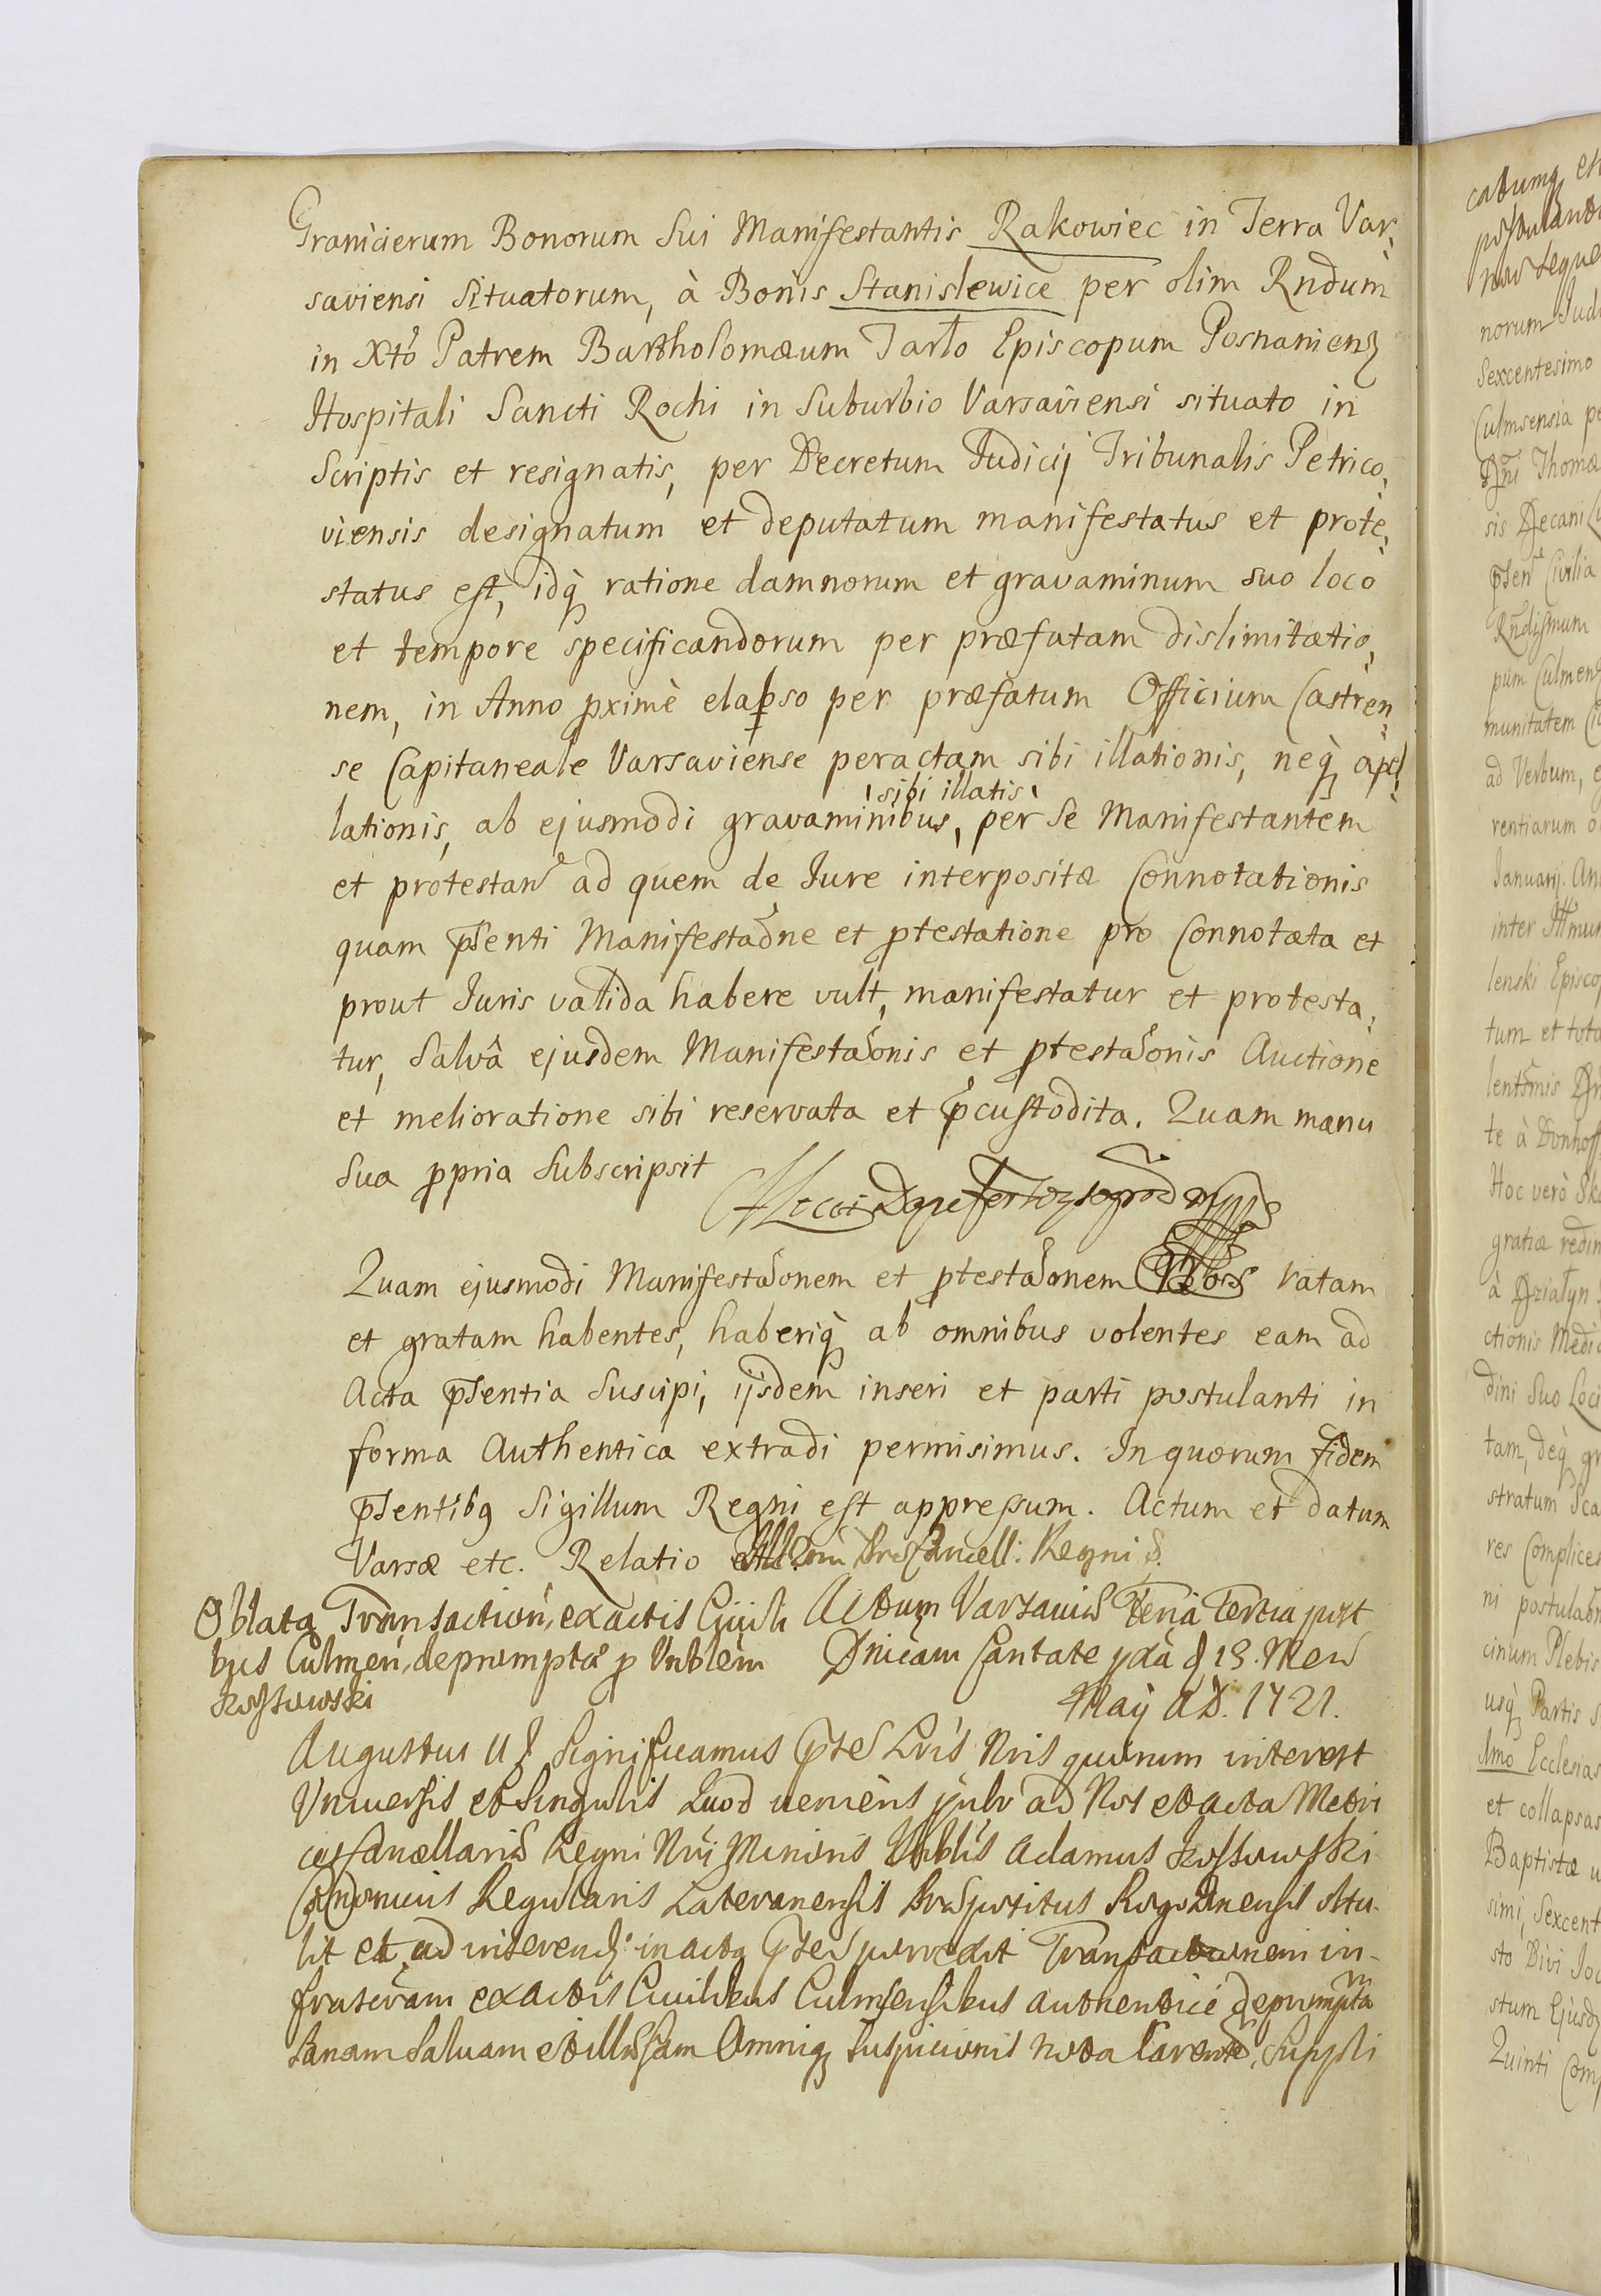 Granicierum Bonorum Sui Manifestantis Rakowiec in Terra Var,
saviensi Situatorum, à Bonis Stanislewice per olim Rndum
in Xto Patrem Bartholomæum Tarło Episcopum Posnaniens
Hospitali Sancti Rochi in Suburbio Varsaviensi situato in
Scriptis et resignatis, per Decretum Judicij Tribunalis Petrico,
viensis designatum et deputatum manifestatus et prote,
status est, idq ratione damnorum et gravaminum suo loco
et tempore specificandorum per præfatam dislimitatio,
nem, in Anno pximè elapso per præfatum Officium Castren,
se Capitaneale Varsaviense peractam sibi illationis, neq apel,
sibi illatis
lationis, ab ejusmodi gravaminibus, per Se Manifestantem
et protestan ad quem de Jure interpositæ Connotationis
quam psenti Manifestaone et ptestatione pro Connotata et
prout Juris valida habere vult, manifestatur et protesta,
tur, Salvâ ejusdem Manifestaonis et ptestaonis Auctione
et melioratione sibi reservata et pcustodita. Quam manu
Sua ppria Subscripsit
Quam ejusmodi Manifestaonem et ptestaonem Nos ratam
et gratam habentes, haberiq ab omnibus volentes eam ad
Acta psentia Suscipi, ijsdem inseri et parti postulanti in
forma Authentica extradi permisimus. In quorum fidem
psentibq Sigillum Regni est appressum. Actum et datum
Varsæ etc. Relatio Regni
Oblata Transaction, ex actis Civili
bus Culmen, depromptæ p Vnblem
Kossowski
Actum Varsaviæ Feria Tertia post
Dnicam Cantate 13. Men
Maij A D. 1721.
Augustus II Significamus pte Lris Nris quorum interest
Vniversis et Singulis Quod veniens ad Nos et acta Metri
ces Cancellariæ Regni Nri Minoris Vnblis Adamus Kossowski
Canonicus Regularis Lateranensis Præpositus obtu
lit et ad in acta ptes porrexit Transactionem in-
frascram ex actis Civilibus Culmensibus authentice deprompta
Sanam Salvam et illæsam Omniq suspicionis nota Carente, Suppli
catumq
norum Jud
Sexcentesimo
Culmsensia pe
Dni Thomæ
sis Decani
Civilia
Rndissimum
pum Culmens
munitatem
ad Verbum,
rentiarum
Januarij. An
inter Illmum
lenski Episcop
tum et tota
te à Donhoff
Hoc verò
gratiæ
à Dzialyn
ctionis Medi
dini Suo Loci
tam, deq gr
stratum Sca
res Complices
ni
cinum Plebis
usq Partis
Immo Ecclesias
et collapsas
Baptistæ
simi, Sexcent
sto Divi
stum Ejusd
Quinti Com